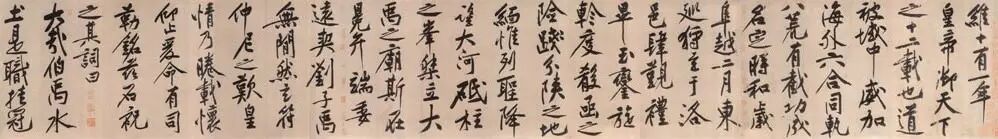 維十有一年
皇帝御天下
之十二載也道
被域中威加
海外六合同軌
八荒有截功成
名定時和歲
阜越二月東
巡狩至于洛
邑肆覲禮
畢玉鑾旋
軫度殽函之
險踐分陝之地
緬惟列聖降
望大河砥柱
之峯桀立大
禹之廟斯在
冕弁端委
遠契劉子禹
無間然玄符
仲尼之歎皇
情乃睠載懷
仰止爰命有司
勒銘茲石祝
之其詞曰
大哉伯禹水
土是職挂冠